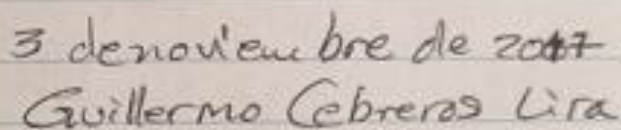 3 de noviembre de 2017
Guillermo Cebreros Lira